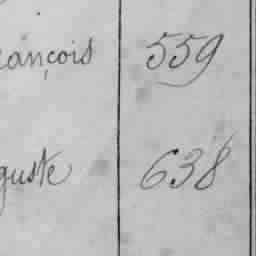 ançois 559
guste 638